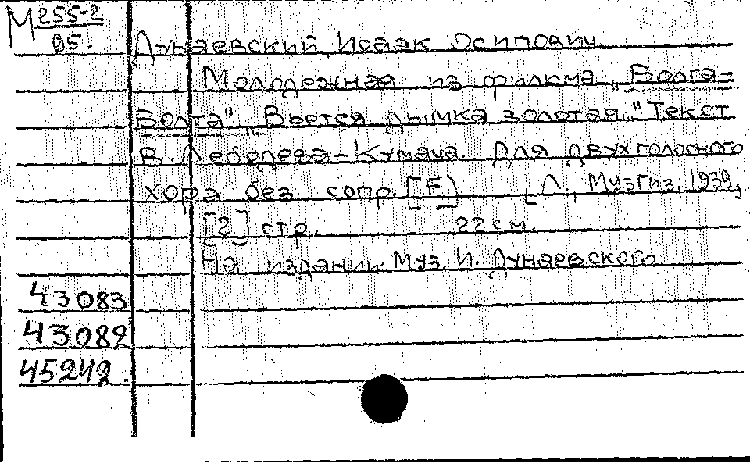 М 255-2
85.
Дунаевский, Исаак Осипович
Молодежная из фильма „Волга-
Волга". „Вьется дымка золотая..." Текст
В. Лебедева-Кумача. Для двухголосного
хора без сопр. [F] [Л., Музгиз, 1939,
[2] стр. 22 см.
На издании: Муз. И. Дунаевского
43083
43089
45242